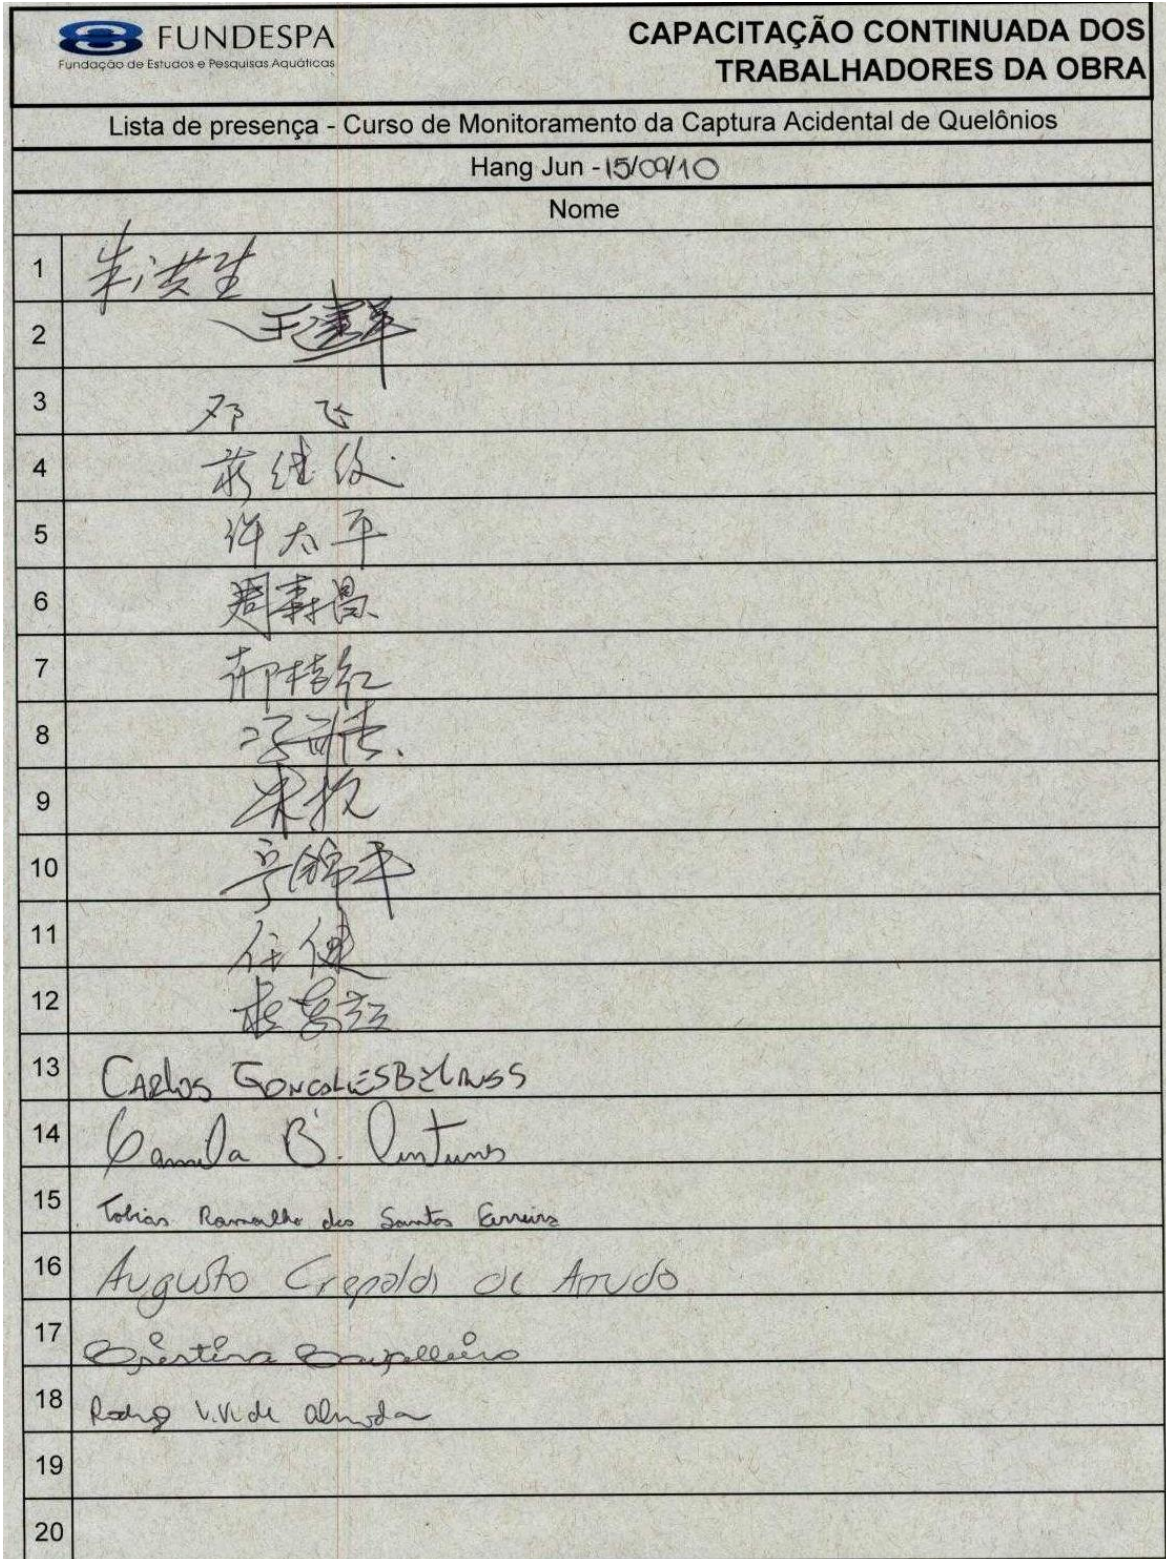 FUNDESPA
Fundação de Estudos e Pesquisas Aquáticas
CAPACITAÇÃO CONTINUADA DOS
TRABALHADORES DA OBRA
Lista de presença - Curso de Monitoramento da Captura Acidental de Quelônios
Hang Jun - 15/09/10
Nome
1 朱洪生
2 王建军
3 邓飞
4 蒋继
5 许太平
6 周寿昌
7 郝桂红
8 冯
9 宋
10
11 任健
12
13 CARLOS
14 Camila B. Antunes
15 Tobias Ramalho dos Santos Ferreira
16 Augusto Crepaldi de
17
18 Rodrigo V. V. de Almeida
19
20